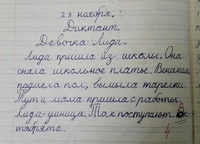 29 ноября.
Диктант.
Девочка Лида.
Лида пришла из школы. Она
сняла школьное платье. Веником
подмела пол, вымыла тарелки.
Тут и мама пришла с работы.
Лида-умница. Так поступают
тября́та.
4